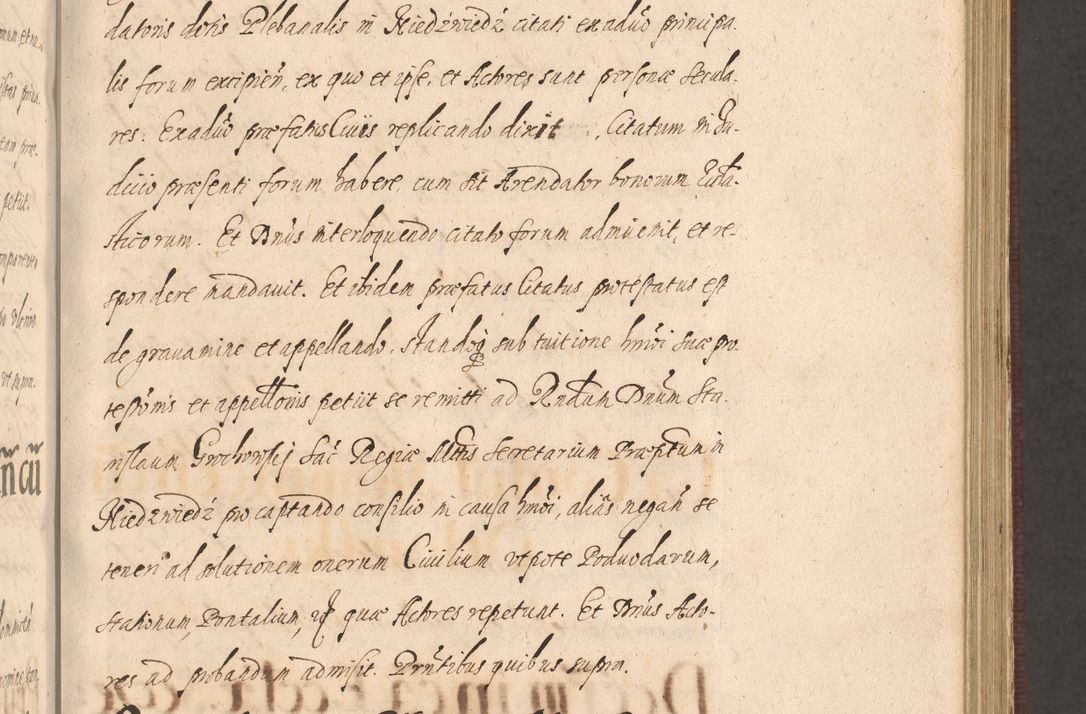 datoris dotis Plebanalis in Niedźwiedź citati ex aduõ principa-
lis forum excipień, ex quo et ipse, et Actores sunt personæ secula-
res. Ex aduõ præfatis Ciuis replicando dixit, Citatum in Ju-
dicio præsenti forum habere, cum sit Arendator bonorum Eccla-
sticorum. Et Dnus interloquendo citato forum adinuenit, et re-
spondere mandauit. Et ibidem præfatus Citatus protestatus est
de grauamine et appellando, standoq sub tuitione hmoi suæ pro-
testonis et appellonis petiit se remitti ad Rndum Dnum Sta-
nislaum Grochowskj Sac Regiæ Mttis Secretarium Præptum in
Niedzwiedź pro captando consilio in causa hmoi, alias negan se
teneri ad solutionem onerum Ciuilium vtpote Poduodarum,
stationum, Pontalium, quæ Actores repetunt. Et Dnus Acto-
res ad probandum admisit. Prntibus quibus supra.